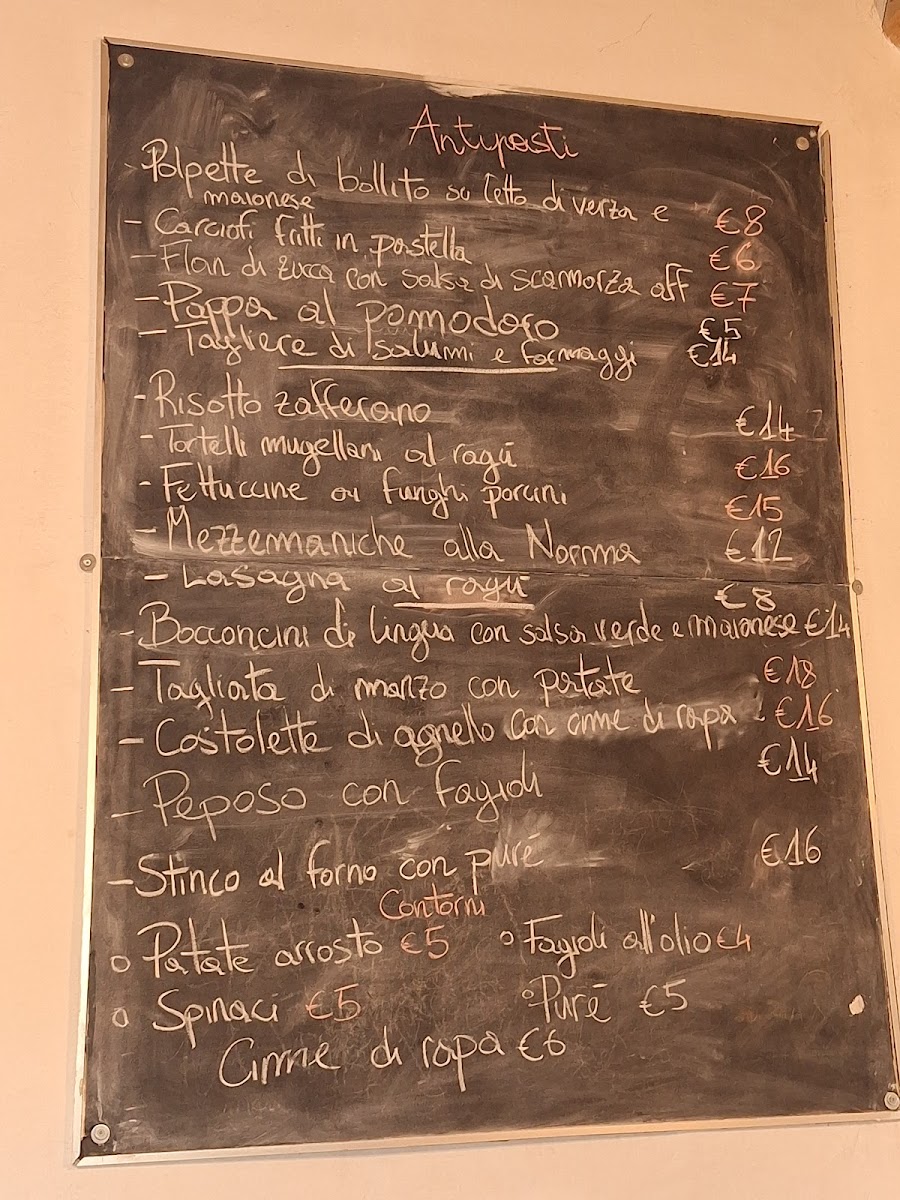 Antipasti
- Polpette di bollito su letto di verza e
maionese €8
- Carciofi fritti in pastella €6
- Flan di zucca con salsa di scamorza aff €7
- Pappa al pomodoro €5
- Tagliere di salumi e formaggi €14
- Risotto zafferano €14
- Tortelli mugellani al ragù €16
- Fettuccine ai funghi porcini €15
- Mezzemaniche alla Norma €12
- Lasagna al ragù €8
- Bocconcini di lingua con salsa verde e maionese €14
- Tagliata di manzo con patate €18
- Costolette di agnello con cime di rapa - €16
- Peposo con fagioli €14
- Stinco al forno con purè €16
Contorni
o Patate arrosto €5 o Fagioli all'olio €4
o Spinaci €5 o Purè €5
Cime di rapa €6